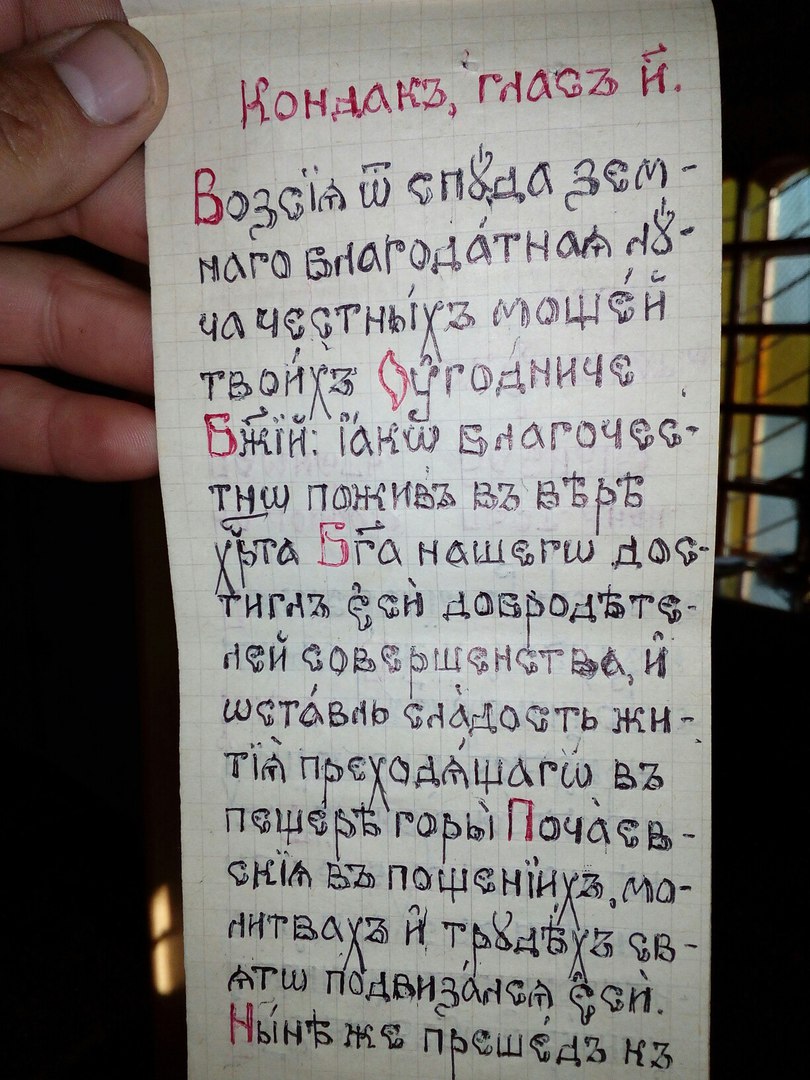 Кондакъ, гласъ и҃.
Возсїѧ ѿ спꙋ́да зем-
наго благода́тнаѧ лꙋ-
ча честны́хъ моще́й
твои́хъ Оу҆го́дниче
Бж҃їй: ꙗ҆́кѡ благочес-
тнѡ пожи́въ въ вѣ́рѣ
хрⷭ҇та Бг҃а нашегѡ дос-
тиглъ є҆сѝ добродѣте-
лей соверше́нства, и҆
ѡста́вль сла́дость жи-
тїѧ̀ преходѧ́щагѡ въ
пеще́рѣ горы̀ Поча́ев-
скїѧ въ пощенїихъ, мо-
литвахъ и҆ трꙋдѣ́хъ св-
ѧтѡ подвиза́лсѧ є҆сѝ.
Ны́нѣ же преше́дъ къ